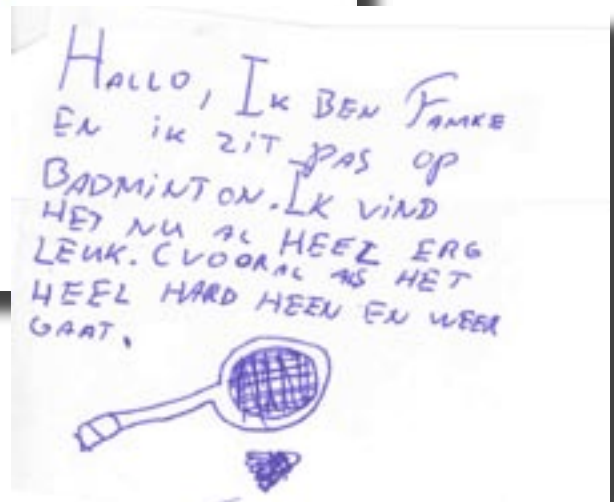 HALLO, IK BEN FAMKE
EN iK ZiT PAS OP
BADMiNTON. IK ViND
HET NU AL HEEL ERG
LEUK. (VOORAL ALS HET
HEEL HARD HEEN EN WEER
GAAT.